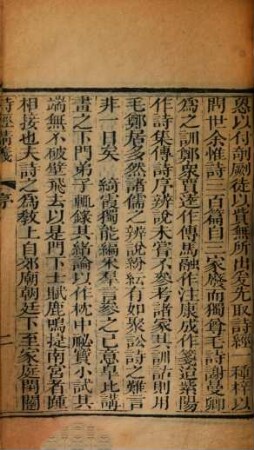 急以付剞劂徒以貲無所出爰先取詩經一種梓以
問世余惟詩三百篇自三家廢而獨尊毛詩謝曼卿
為之訓鄭衆賈逵作傳馬融作注康成作箋迨紫陽
作詩集傳詩序辨說未嘗不參考諸家其訓詁則用
毛鄭居多然諸儒之辨說紛紜有如聚訟詩之難言
非一日矣 綺霞獨能編采羣言參之己意臯比講
畫之下門弟子輒錄其緒論以作枕中秘寶小試其
端無不破壁飛去以是門下士賦鹿鳴捷南宮者踵
相接也夫詩之為教上自郊廟朝廷下至家庭閨闥
詩經精義 序 二